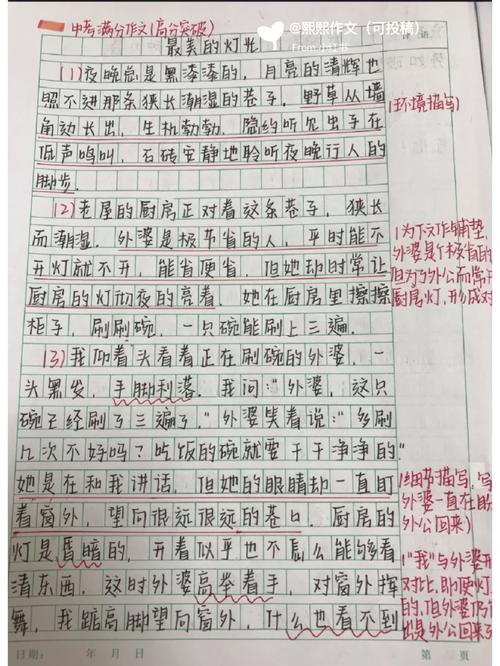 中考满分作文(高分突破)
@熙熙作文(可投稿)
最美的灯光
(1)夜晚总是黑漆漆的，月亮的清辉也
照不进那条狭长潮湿的巷子，野草从墙
角边长出，生机勃勃，隐约听见虫子在
低声鸣叫，石砖安静地聆听夜晚行人的
脚步。
(环境描写)
(2)老屋的厨房正对着这条巷子，狭长
而潮湿。外婆是极节省的人，平时能不
开灯就不开，能省便省，但她却时常让
厨房的灯彻夜的亮着，她在厨房里擦擦
柜子，刷刷碗，一只碗能刷上三遍。
(为下文作铺垫，
外婆是个极省的
但为了外公而常
厨房灯，形成对
(3)我仰着头看着正在刷碗的外婆，一
头黑发，手脚利落。我问："外婆，这只
碗已经刷了三遍了。"外婆笑着说："多刷
几次不好吗？吃饭的碗就要干干净净的"
她是在和我讲话，但她的眼睛却一直盯
着窗外，望向很远很远的巷口。厨房的
灯是昏暗的，开着似乎也不怎么能够看
清东西，这时外婆高举着手，对窗外挥
舞，我踮高脚望向窗外，什么也看不到
(细节描写，写
外婆一直在盼
外公回来)
("我"与外婆
对比，即便灯
的，但外婆乃
出是外公回来了
日期： 年 月 日
第 页